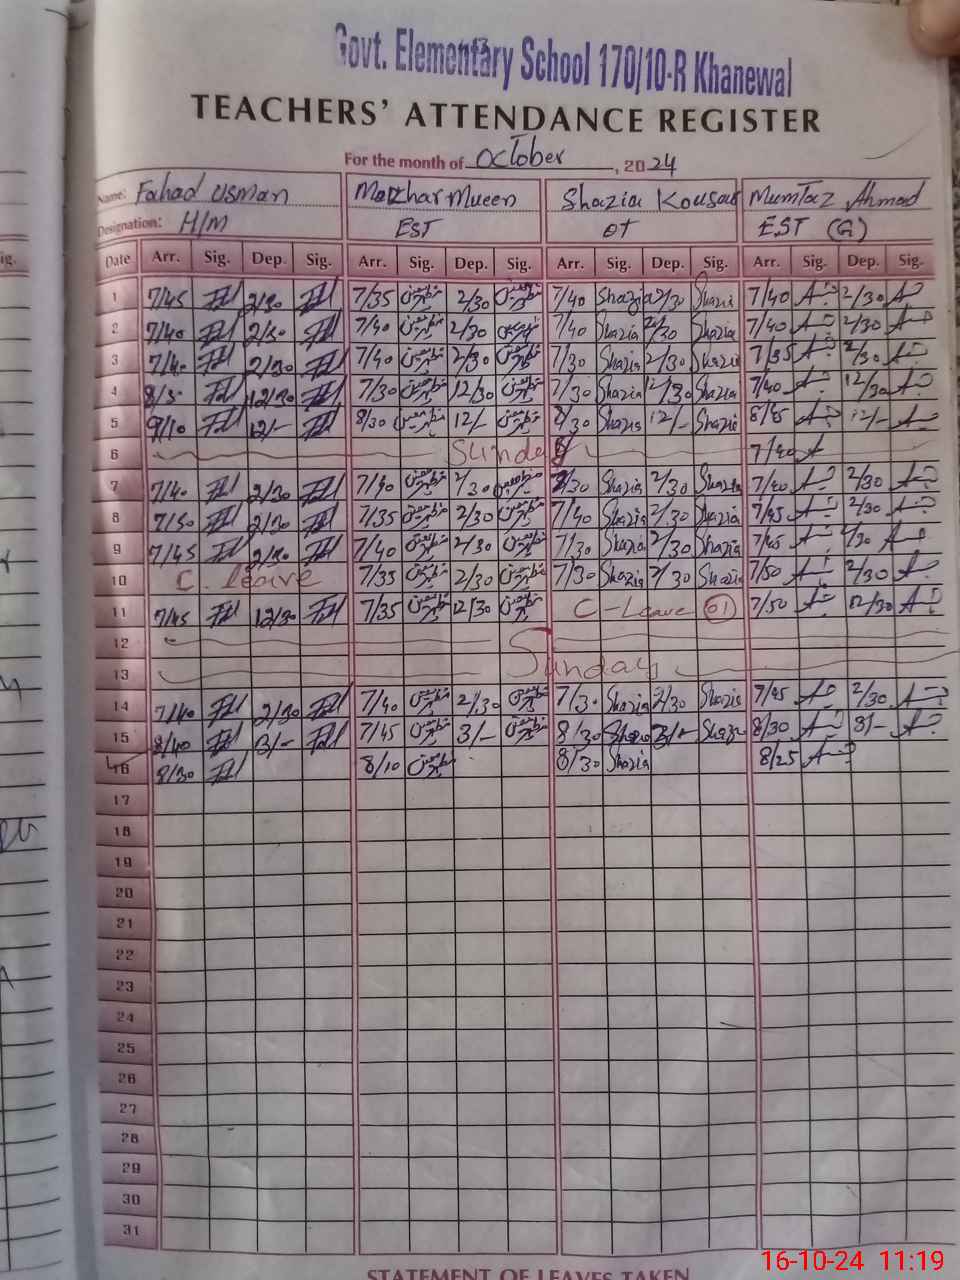 Govt. Elementary School 170/10-R Khanewal
TEACHERS' ATTENDANCE REGISTER
For the month of October, 2024
Name: Fahad Usman Mazhar Mueen Shazia Kousar Mumtaz Ahmad
Designation: H/M EST OT EST (G)
Date Arr. Sig. Dep. Sig. Arr. Sig. Dep. Sig. Arr. Sig. Dep. Sig. Arr. Sig. Dep. Sig.
1 7/45 2/30 7/35 2/30 7/40 Shazia 2/30 Shazia 7/40 2/30
2 7/40 2/30 7/40 2/30 7/40 Shazia 2/30 Shazia 7/40 2/30
3 7/40 2/30 7/40 2/30 7/30 Shazia 2/30 Shazia 7/35 2/30
4 12/30 7/30 12/30 7/30 Shazia 12/30 Shazia 7/40 12/30
5 9/10 12/- 8/30 12/- 8/30 Shazia 12/- Shazia 8/45 12/-
6 Sunday 7/40
7 7/40 2/30 7/40 2/30 7/30 Shazia 2/30 Shazia 7/40 2/30
8 7/50 2/30 7/35 2/30 7/40 Shazia 2/30 Shazia 7/45 2/30
9 7/45 2/30 7/40 2/30 7/30 Shazia 2/30 Shazia 7/45 2/30
10 C. leave 7/35 2/30 7/30 Shazia 2/30 Shazia 7/50 2/30
11 7/45 12/30 7/35 12/30 C-Leave 01 7/50 12/30
12
13 Sunday
14 7/40 2/30 7/40 2/30 7/30 Shazia 2/30 Shazia 7/45 2/30
15 8/40 3/- 7/45 3/- 8/30 Shazia 3/- Shazia 8/30 3/-
16 8/30 8/10 8/30 Shazia 8/25
17
18
19
20
21
22
23
24
25
26
27
28
29
30
31
STATEMENT OF LEAVES TAKEN
16-10-24 11:19